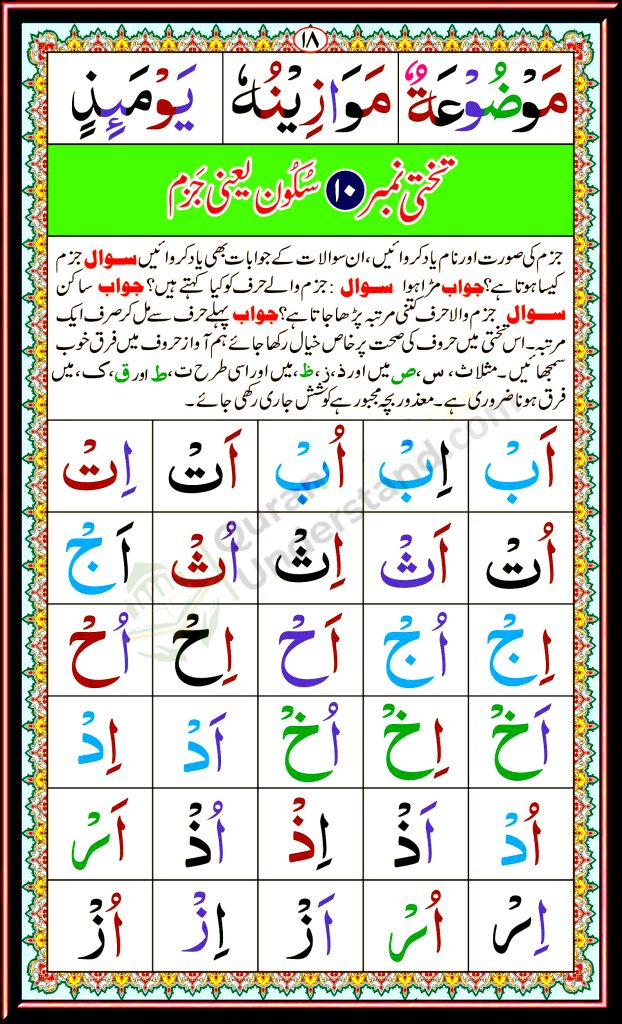 ۱۸
مَوْضُوْعَةٌ مَوَازِيْنُهٗ يَوْمَئِذٍ
تختی نمبر ۱۰ سُکُون یعنی جَزم
جزم کی صورت اور نام یاد کروائیں، ان سوالات کے جوابات بھی یاد کروائیں سوال جزم
کیسا ہوتا ہے؟ جواب مڑا ہوا سوال : جزم والے حرف کو کیا کہتے ہیں؟ جواب ساکن
سوال جزم والا حرف کتنی مرتبہ پڑھا جاتا ہے؟ جواب پہلے حرف سے مل کر صرف ایک
مرتبہ۔ اس تختی میں حروف کی صحت پر خاص خیال رکھا جائے ہم آواز حروف میں فرق خوب
سمجھائیں۔ مثلا ث، س، ص میں اور ذ، ز، ظ، میں اور اسی طرح ت، ط اور ق، ک، میں
فرق ہونا ضروری ہے۔ معذور بچہ مجبور ہے کوشش جاری رکھی جائے۔
اَبْ اِبْ اُبْ اَتْ اِتْ
اُتْ اَثْ اِثْ اُثْ اَجْ
اِجْ اُجْ اَحْ اِحْ اُحْ
اَخْ اِخْ اُخْ اَدْ اِدْ
اُدْ اَذْ اِذْ اُذْ اَرْ
اِرْ اُرْ اَزْ اِزْ اُزْ
Quran
Understand.com